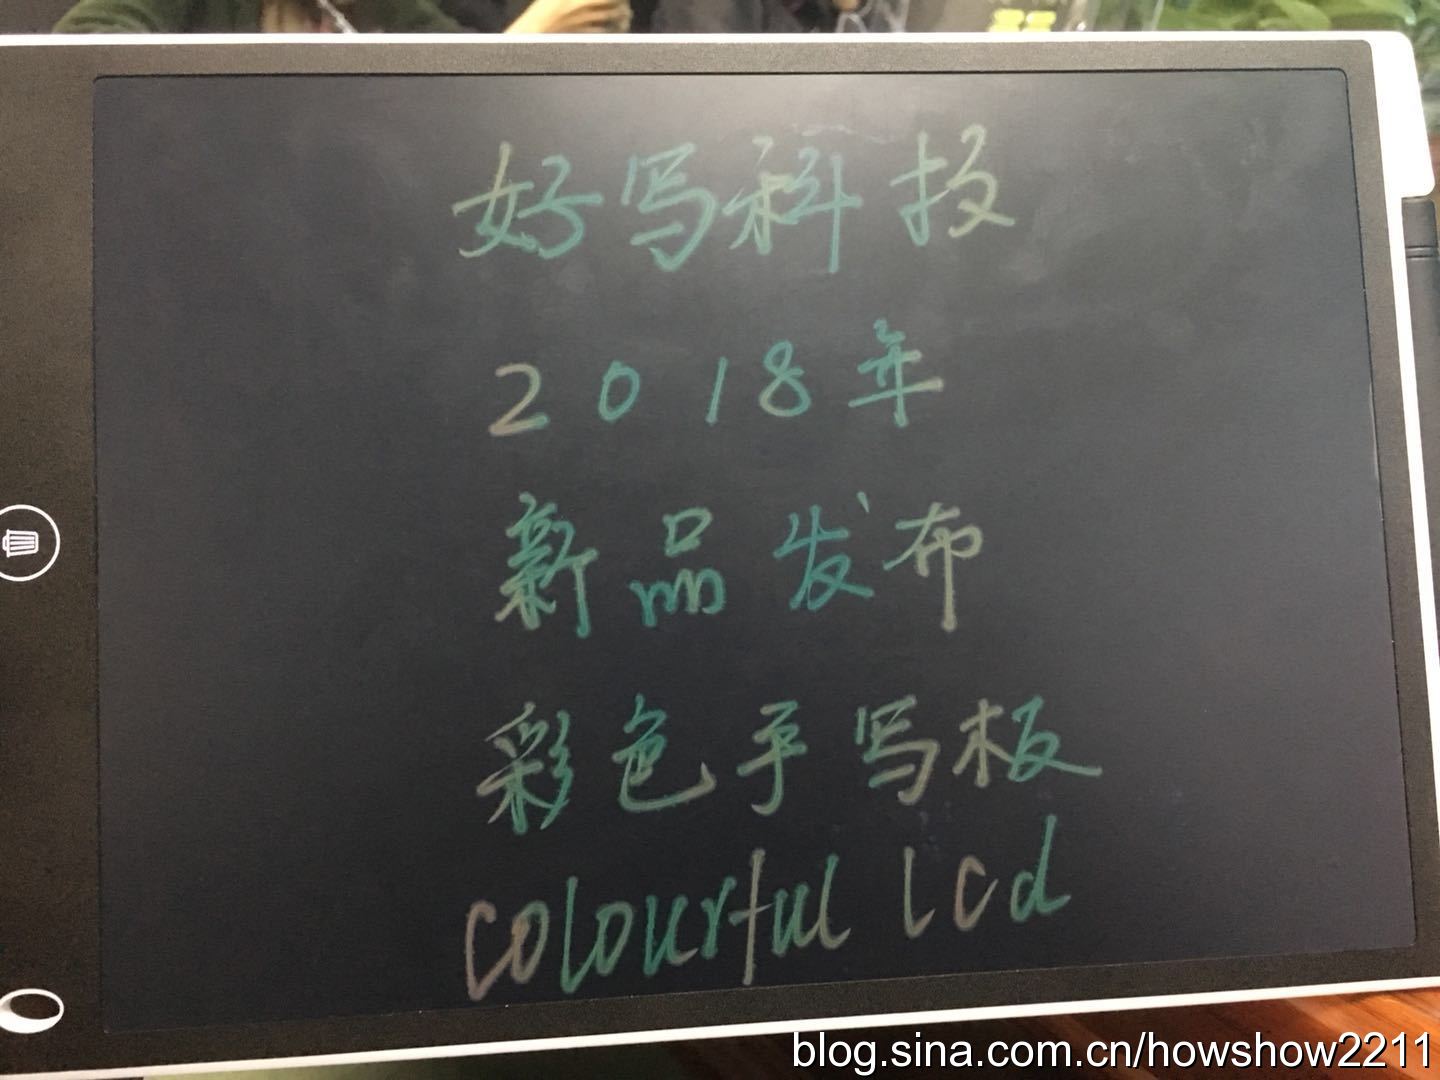 好写科技
2018年
新品发布
彩色手写板
colourful lcd
blog.sina.com.cn/howshow2211